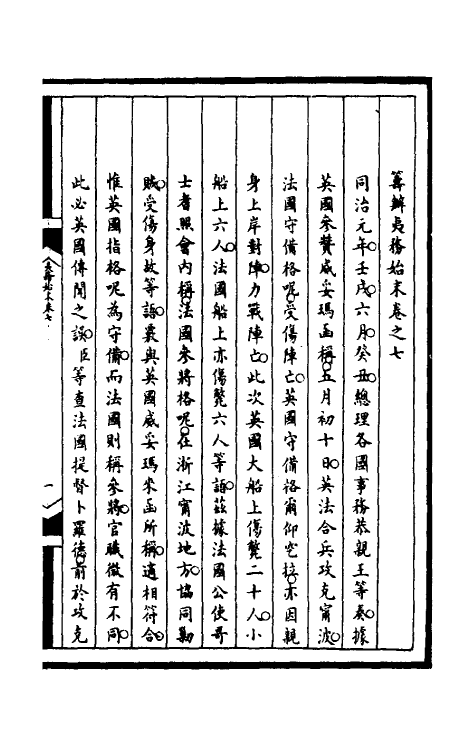 籌辦夷務始末卷之七
同治元年。壬戌六月。癸丑。總理各國事務恭親王等奏。據
英國參贊威妥瑪函稱。五月初十日。英法合兵攻克甯波。
法國守備格呢。受傷陣亡。英國守備格爾仰空拉。亦因親
身上岸對陣。力戰陣亡。此次英國大船上傷斃二十人。小
船上六人。法國船上亦傷斃六人等語。茲據法國公使哥
士耆照會內稱。法國參將格呢。在浙江甯波地方。協同勦
賊受傷身故等語。覈與英國威妥瑪來函所稱。適相符合。
惟英國指格呢為守備。而法國則稱參將。官職微有不同。
此必英國傳聞之誤。臣等查法國提督卜羅德。前於攻克
夷務始末卷七
一